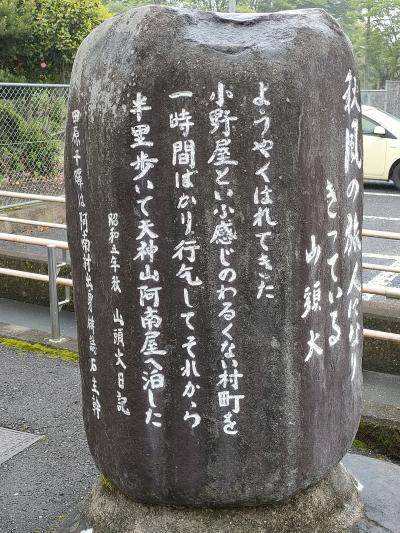 秋風の旅人になり
きつている
山頭火
ようやくはれてきた
小野屋といふ感じのわるくない村町を
一時間ばかり行乞してそれから
半里歩いて天神山阿南屋へ泊した
昭和五年秋　山頭火日記
田原千暉は阿南村出身